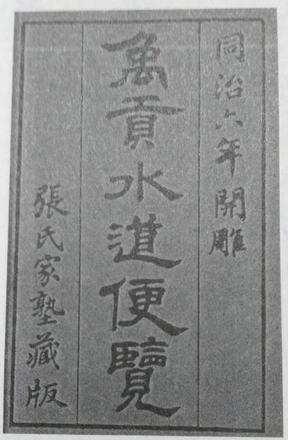 同治六年開雕
禹貢水道便覽
張氏家塾藏版